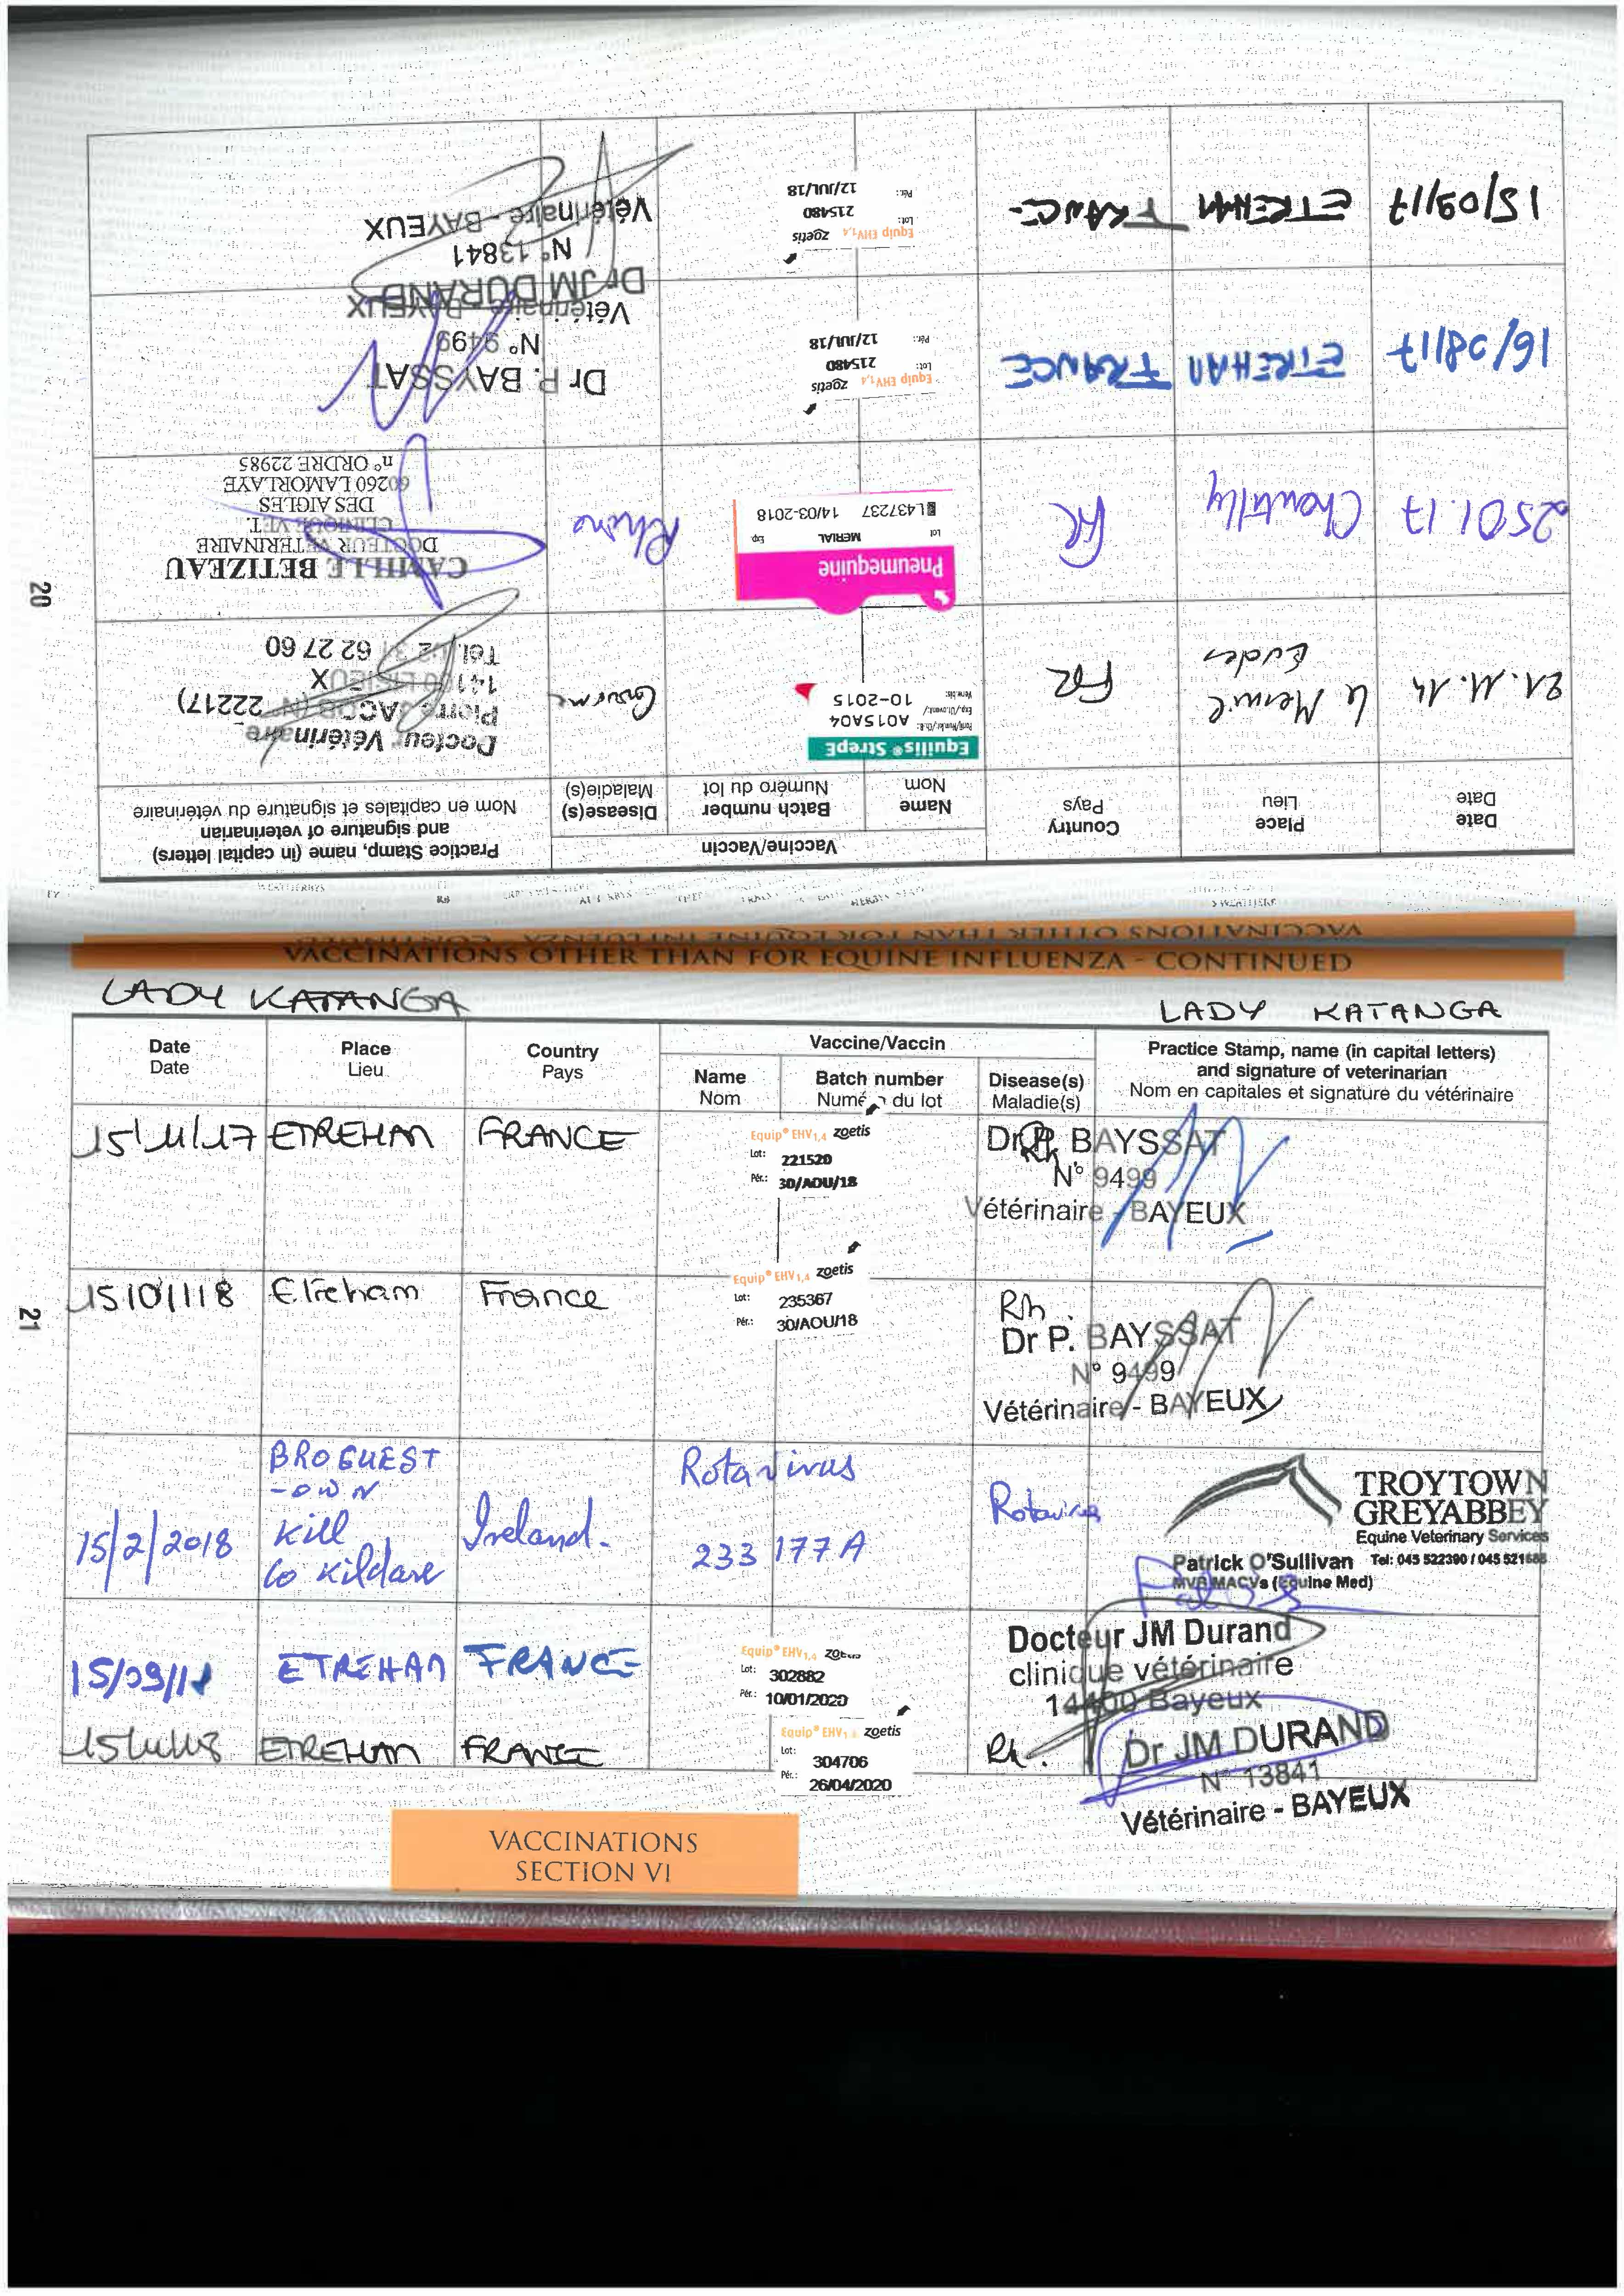 VACCINATIONS OTHER THAN FOR EQUINE INFLUENZA - CONTINUED
Date
Date
Place
Lieu
Country
Pays
Vaccine/Vaccin
Name
Nom
Batch number
Numéro du lot
Disease(s)
Maladie(s)
Practice Stamp, name (in capital letters)
and signature of veterinarian
Nom en capitales et signature du vétérinaire
21.11.14
Le Mesnil
Eudes
FR
Equilis® StrepE
A015A04
10-2015
Gourme
Docteur Vétérinaire
Pierre JACOB (N° 22217)
14100 LISIEUX
Tél. 02 31 62 27 60
25 01.17
Chantilly
FR
Pneumequine
Lot MERIAL Exp
L437237 14/03-2018
Rhino
CAMILLE BETIZEAU
DOCTEUR VETERINAIRE
CLINIQUE VET.
DES AIGLES
60260 LAMORLAYE
n° ORDRE 22985
16/08/17
ETREHAM
FRANCE
Equip EHV1,4 zoetis
Lot: 215480
Pér.: 12/JUL/18
Dr P. BAYSSAT
N° 9499
Vétérinaire - BAYEUX
15/09/17
ETREHAM
FRANCE-
Equip EHV1,4 zoetis
Lot: 215480
Pér.: 12/JUL/18
Dr JM DURAND
N° 13841
Vétérinaire - BAYEUX
20
VACCINATIONS OTHER THAN FOR EQUINE INFLUENZA - CONTINUED
LADY KATANGA
LADY KATANGA
Date
Date
Place
Lieu
Country
Pays
Vaccine/Vaccin
Name
Nom
Batch number
Numé o du lot
Disease(s)
Maladie(s)
Practice Stamp, name (in capital letters)
and signature of veterinarian
Nom en capitales et signature du vétérinaire
15/11/17
ETREHAM
FRANCE
Equip® EHV1,4 zoetis
Lot: 221520
Pér.: 30/AOU/18
Rh
Dr P. BAYSSAT
N° 9499
Vétérinaire - BAYEUX
15/01/18
Etreham
France
Equip® EHV1,4 zoetis
Lot: 235367
Pér.: 30/AOU/18
Rh.
Dr P. BAYSSAT
N° 9499
Vétérinaire - BAYEUX
15/2/2018
BROGUEST
-OWN
Kill
Co Kildare
Ireland.
Rotavirus
233 177A
Rotavirus
TROYTOWN
GREYABBEY
Equine Veterinary Services
Patrick O'Sullivan Tel: 045 522390 / 045 521686
MVB MACVs (Equine Med)
15/09/18
ETREHAM
FRANCE
Equip® EHV1,4 zoetis
Lot: 302882
Pér.: 10/01/2020
Docteur JM Durand
clinique vétérinaire
14400 Bayeux
15/11/18
ETREHAM
FRANCE
Equip® EHV1,4 zoetis
Lot: 304706
Pér.: 26/04/2020
Rh.
Dr JM DURAND
N° 13841
Vétérinaire - BAYEUX
21
VACCINATIONS
SECTION VI